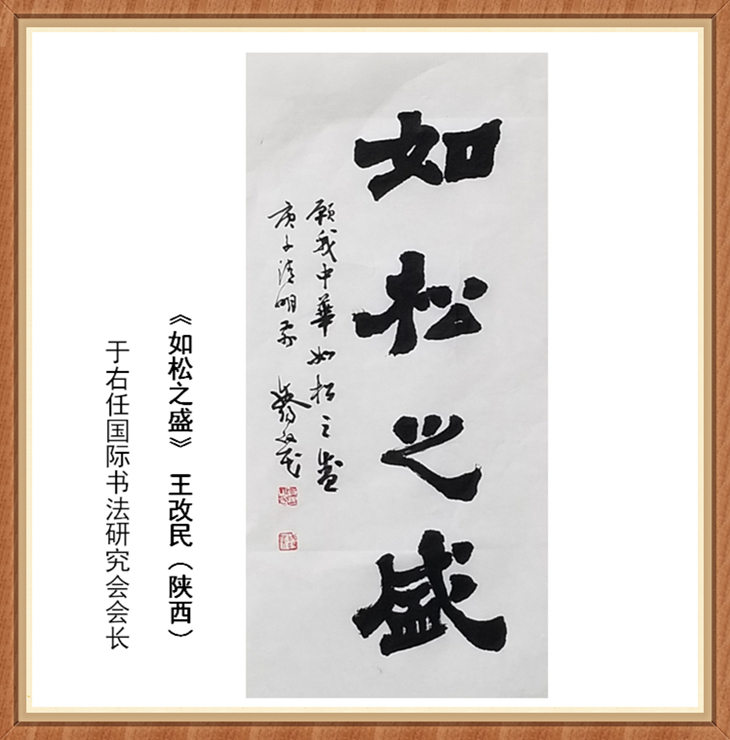 如松之盛
愿我中华如松之盛
庚子清明前
改民
《如松之盛》 王改民（陕西）
于右任国际书法研究会会长